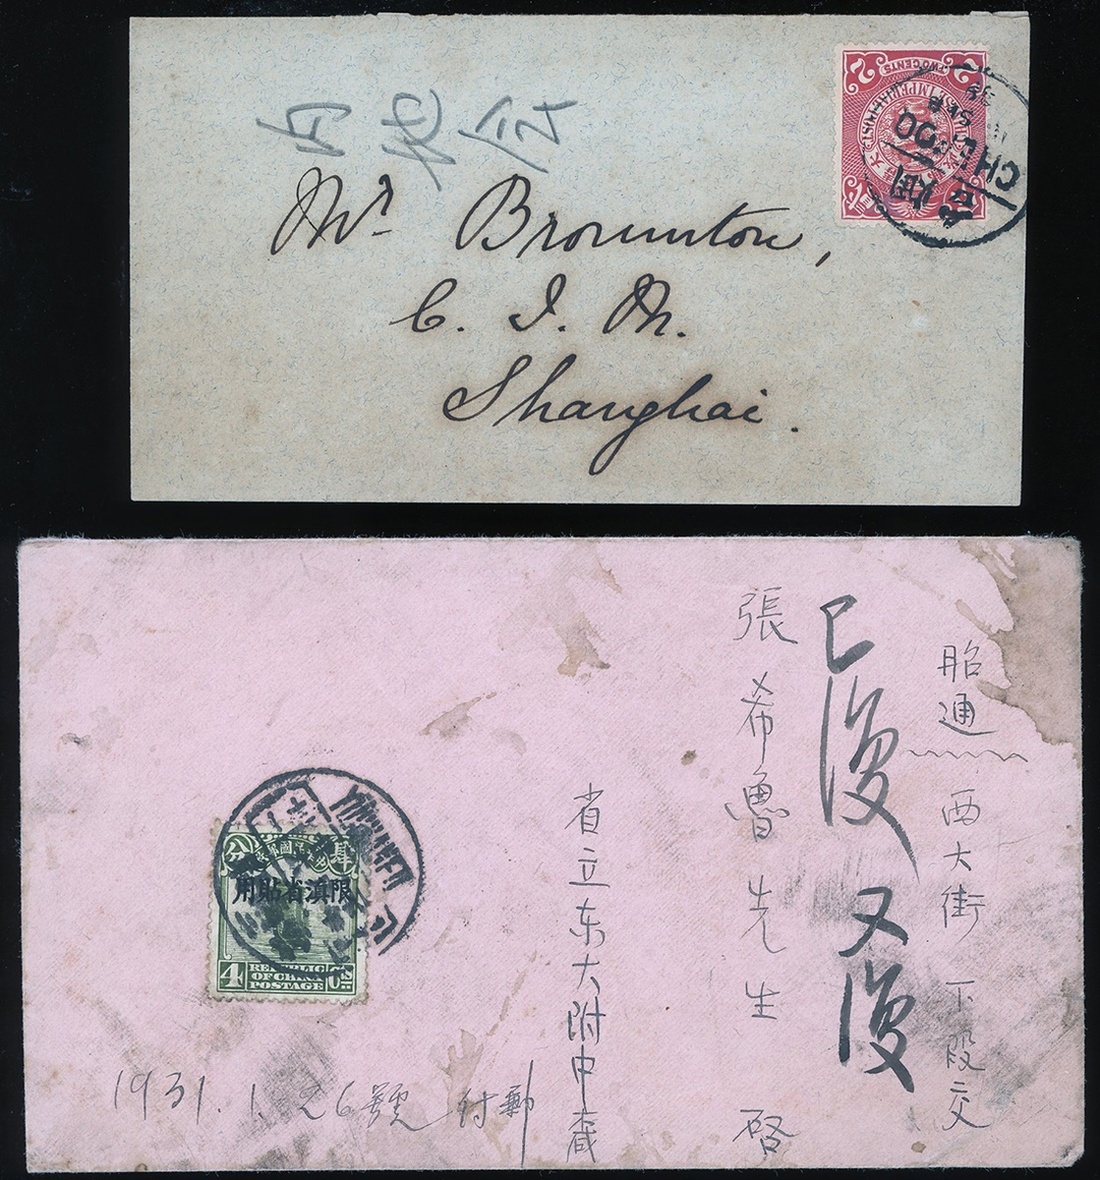 内地会
Mr Brounton,
C. I. M.
Shanghai.
2 TWO CENTS 2
CHEFOO
昭通 西大街 下段交
已復 又復
張希魯先生 啓
省立东大附中
1931.1.26號 付郵
分 肆
限滇省貼用
4 REPUBLIC
OF CHINA
POSTAGE CTS